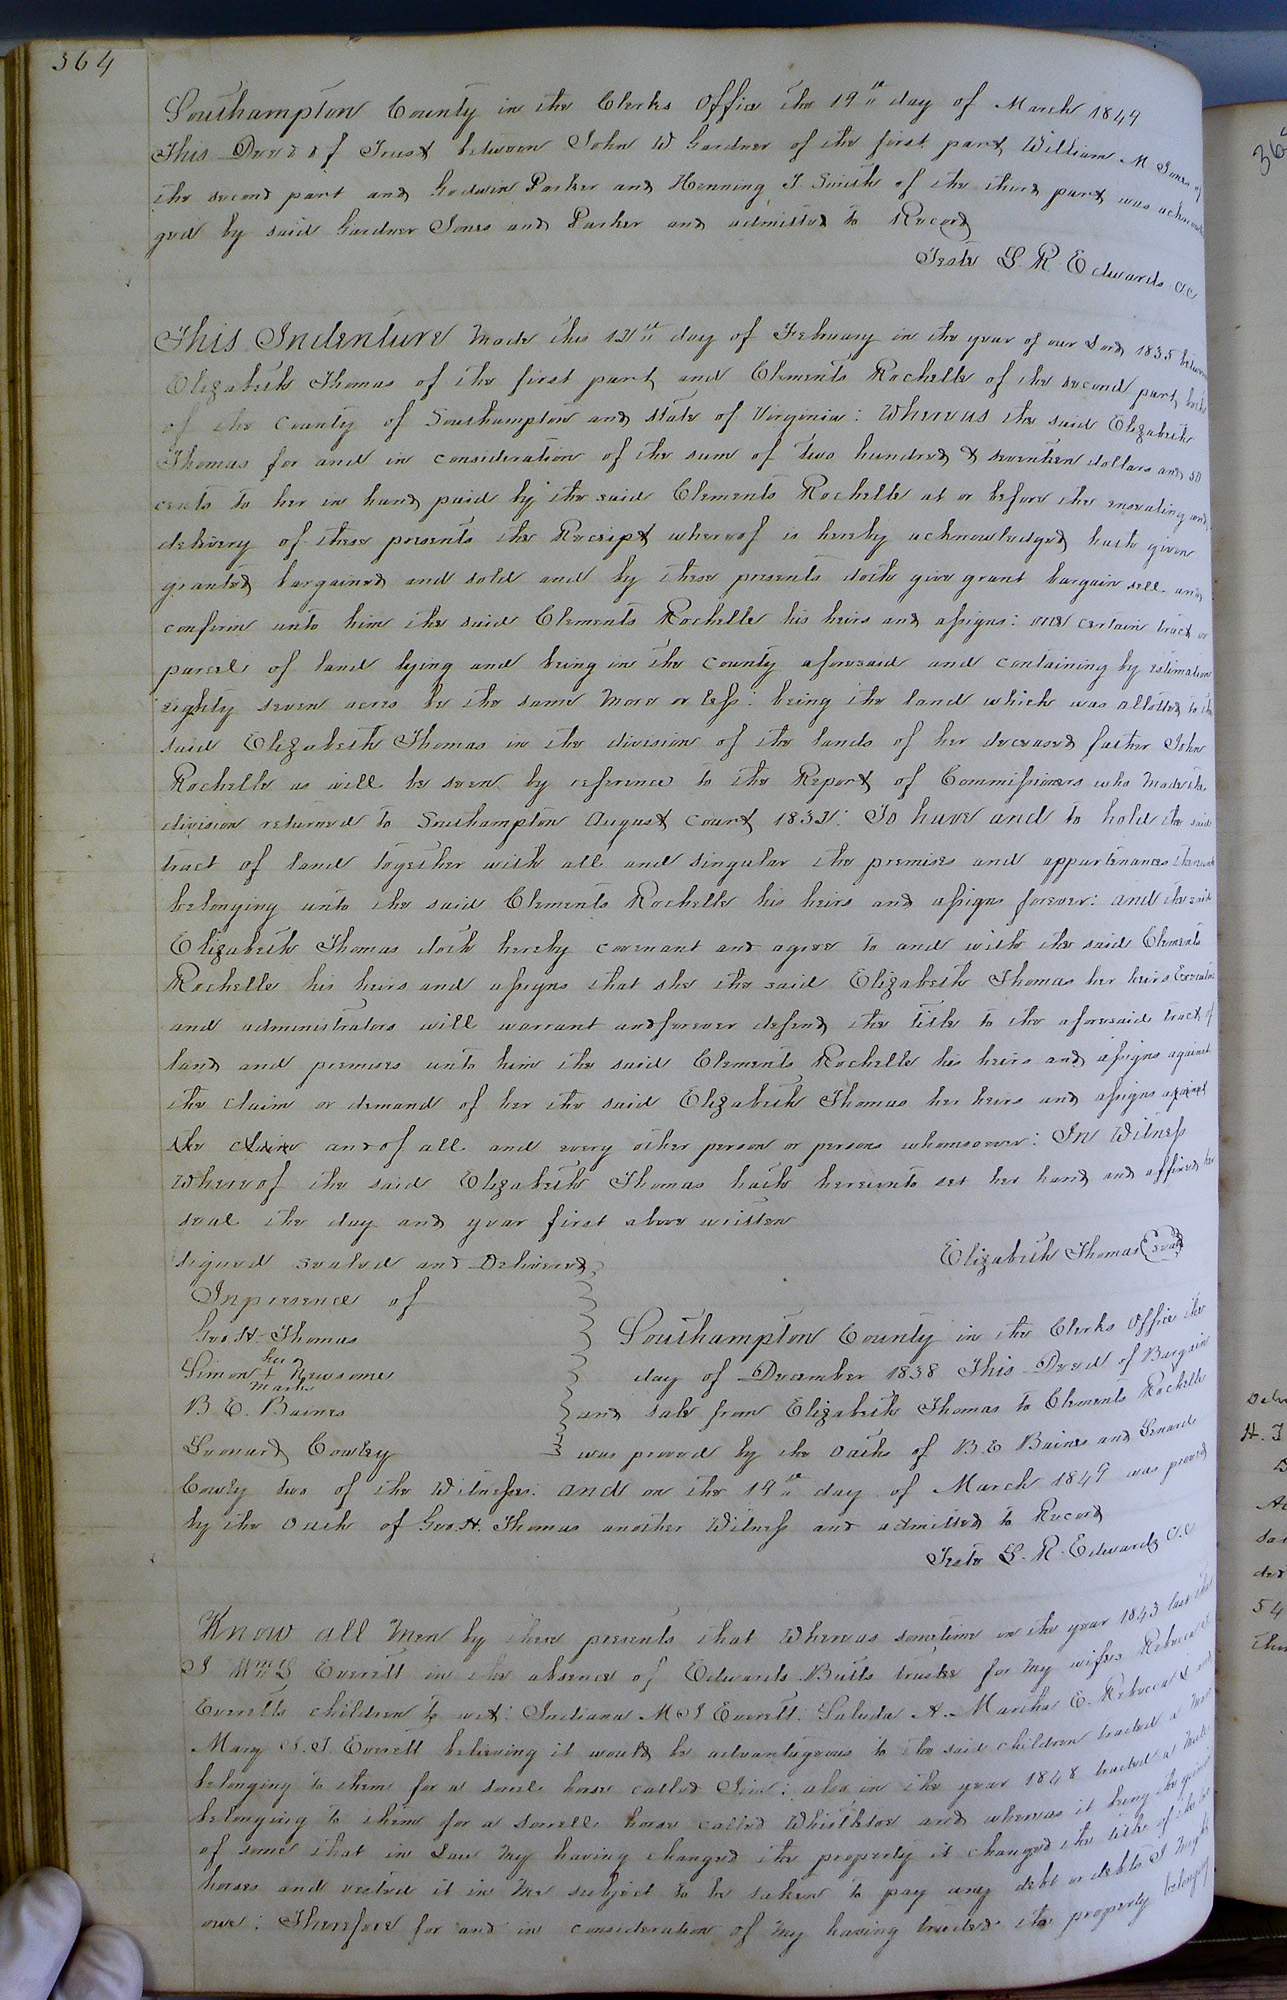 364
Southampton County in the Clerks Office the 19th day of March 1849
This Deed of Trust between John W Gardner of the first part, William M Jones of
the second part and Godwin Parker and Henning T Smith of the third part was acknowled
ged by said Gardner Jones and Parker and admitted to Record
Teste L. R. Edwards C.C.
This Indenture Made this 12th day of February in the year of our Lord 1835 between
Elizabeth Thomas of the first part and Clements Rochelle of the second part, both
of the County of Southampton and State of Virginia: Whereas the said Elizabeth
Thomas for and in consideration of the sum of two hundred & seventeen dollars and 50
cents to her in hand paid by the said Clements Rochelle at or before the ensealing and
delivery of these presents the Receipt whereof is hereby acknowledged hath given
granted bargained and sold and by these presents doth give grant bargain sell and
confirm unto him the said Clements Rochelle his heirs and assigns: one certain tract or
parcel of land lying and being in the County aforesaid and containing by estimation
eighty seven acres be the same More or less: being the land which was allotted to the
said Elizabeth Thomas in the division of the lands of her deceased father John
Rochelle as will be seen by reference to the Report of Commissioners who Made the
division returned to Southampton August Court 1832: To have and to hold the said
tract of land together with all and singular the premises and appurtenances thereunto
belonging unto the said Clements Rochelle his heirs and assigns forever: and the said
Elizabeth Thomas doth hereby covenant and agree to and with the said Clements
Rochelle his heirs and assigns that she the said Elizabeth Thomas her heirs Executors
and administrators will warrant and forever defend the title to the aforesaid tract of
land and premises unto him the said Clements Rochelle his heirs and assigns against
the claim or demand of her the said Elizabeth Thomas her heirs and assigns against
the claim and of all and every other person or persons whomsoever: In Witness
Whereof the said Elizabeth Thomas hath hereunto set her hand and affixed her
seal the day and year first above written
Elizabeth Thomas (seal)
signed sealed and Delivered
In presence of
Geo. H. Thomas
her
Simon + Newsome
mark
B E. Baines
Leonard Cowley
Southampton County in the Clerks Office the
day of December 1838 This Deed of Bargain
and sale from Elizabeth Thomas to Clements Rochelle
was proved by the oaths of B. E Baines and Lenard
Cowly two of the Witnesses: and on the 19th day of March 1849 was proved
by the oath of Geo. H. Thomas another Witness and admitted to Record
Teste L. R. Edwards C.C
Know all Men by these presents that Whereas sometime in the year 1843 last
I Wm G Everett in the absence of Edwards Butts trustee for My wifes Rebecca
Everetts children to wit: Indiana M J Everett. Saluda A. Martha E. Rebecca & and
Mary S. J Everett believing it would be advantageous to the said children traded a
belonging to them for a sorrel horse called Jim: also in the year 1848 traded a Mule
belonging to them for a sorrell horse called Whistletoe and whereas it being the
of some that in Law My having changed the property it changed the title of the
horses and vested it in Me subject to be taken to pay any debt or debts I Might
owe: Therefore for and in consideration of My having traded the property belonging